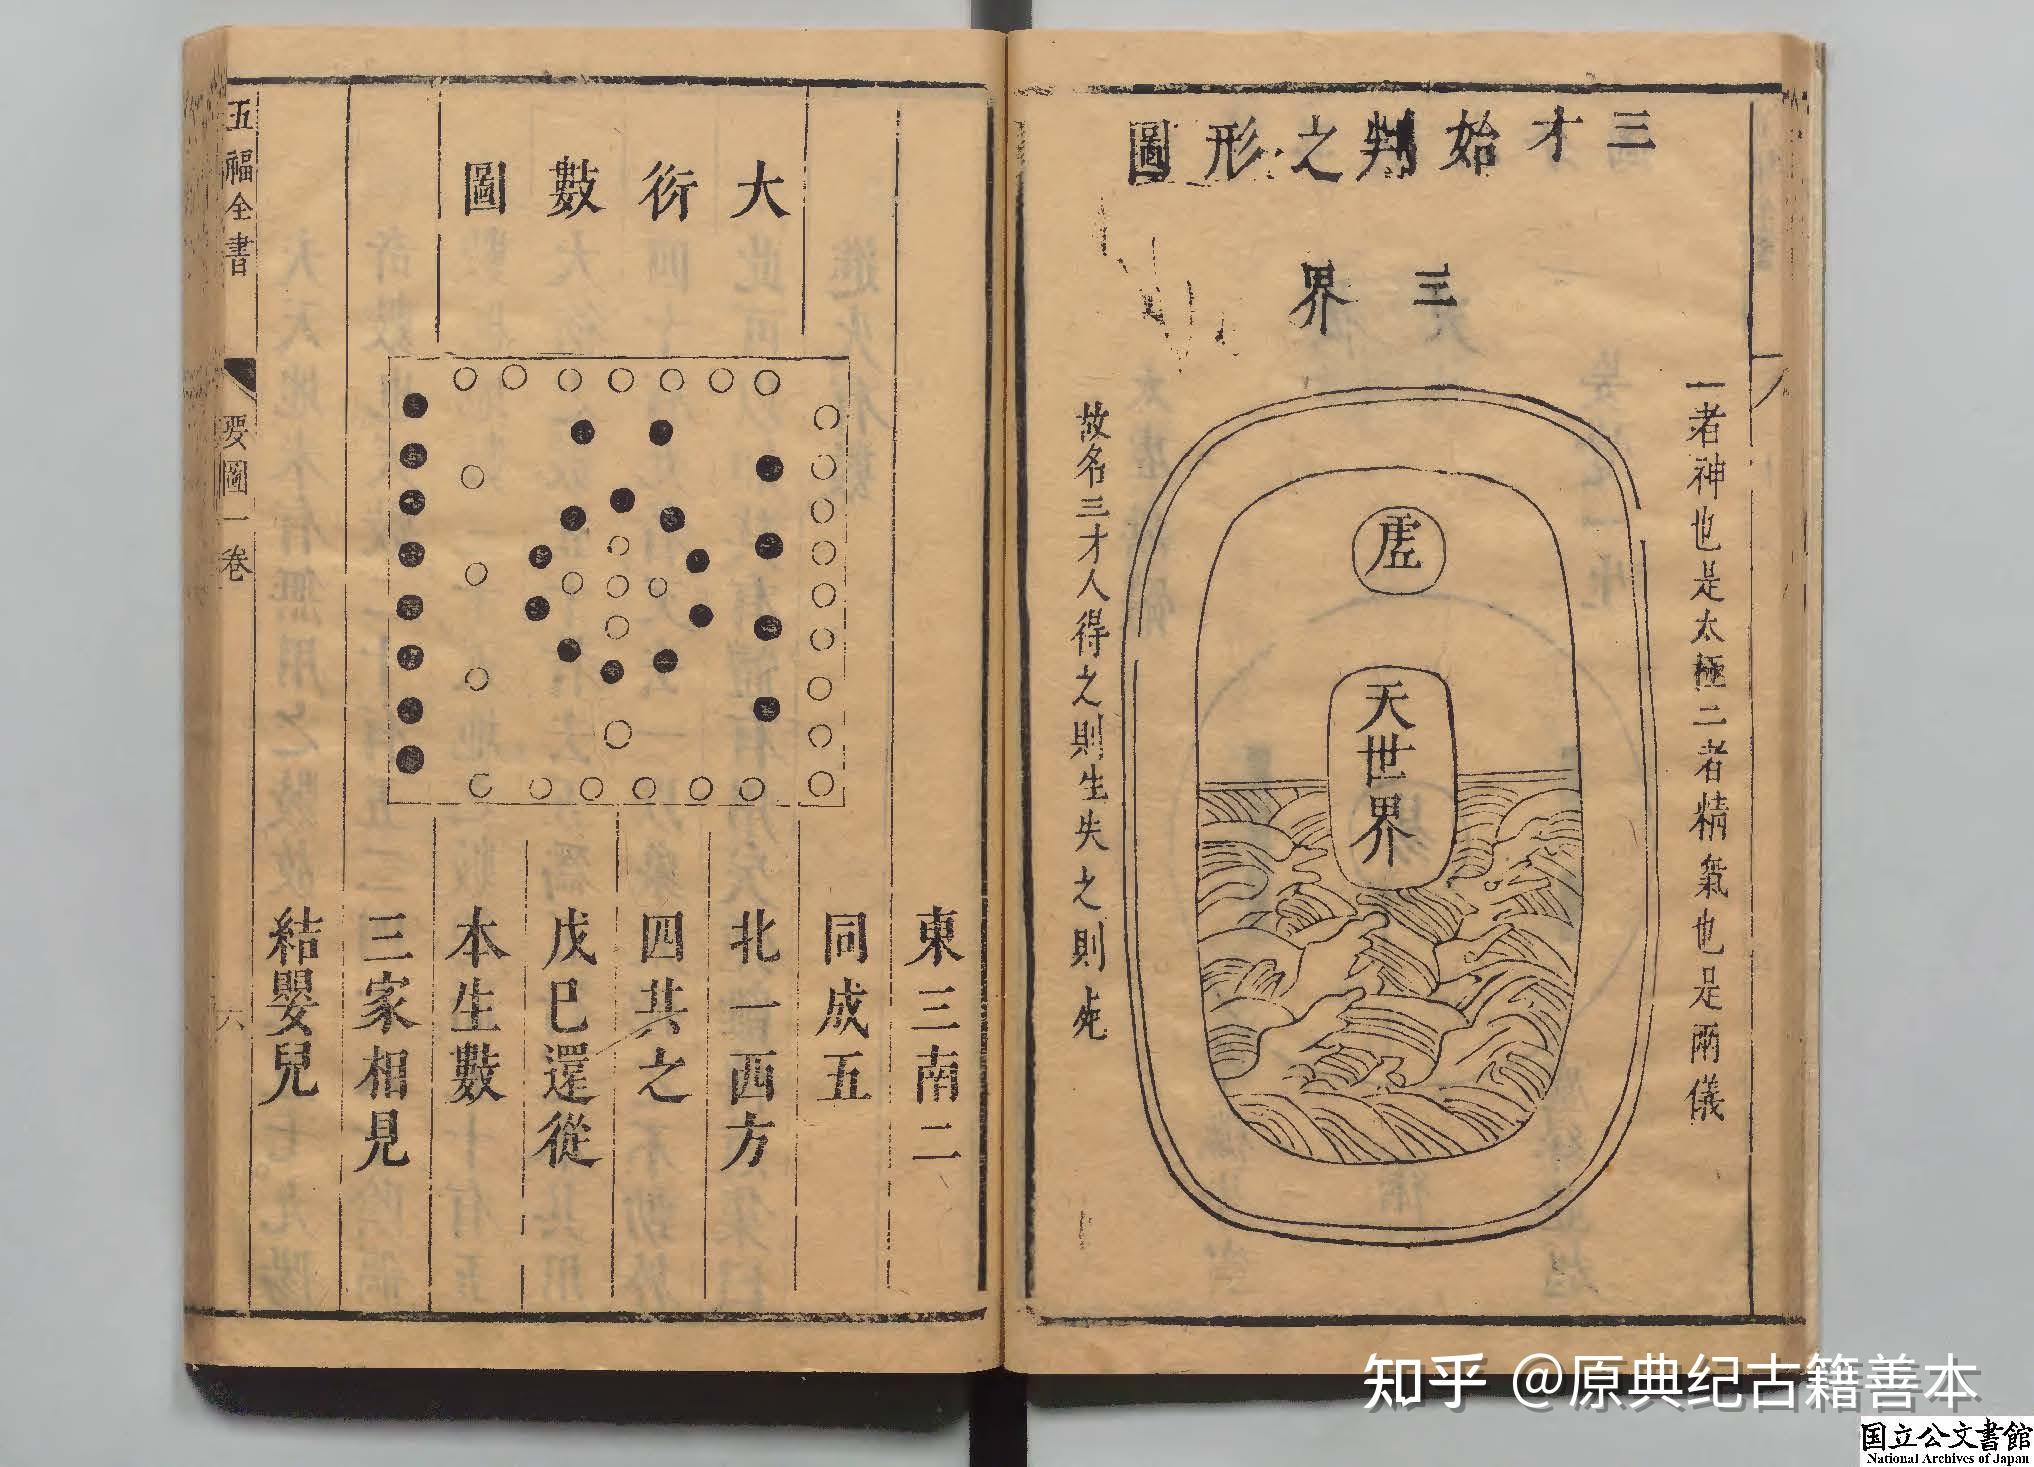 三才始判之形圖
三界
一者神也是太極二者精氣也是兩儀
虛
天世界
故名三才人得之則生失之則死
大衍數圖
東三南二
同成五
北一西方
四共之
戊巳還從
本生數
三家相見
結嬰兒
五福全書
要圖一卷
六
知乎 @原典纪古籍善本
国立公文書館
National Archives of Japan